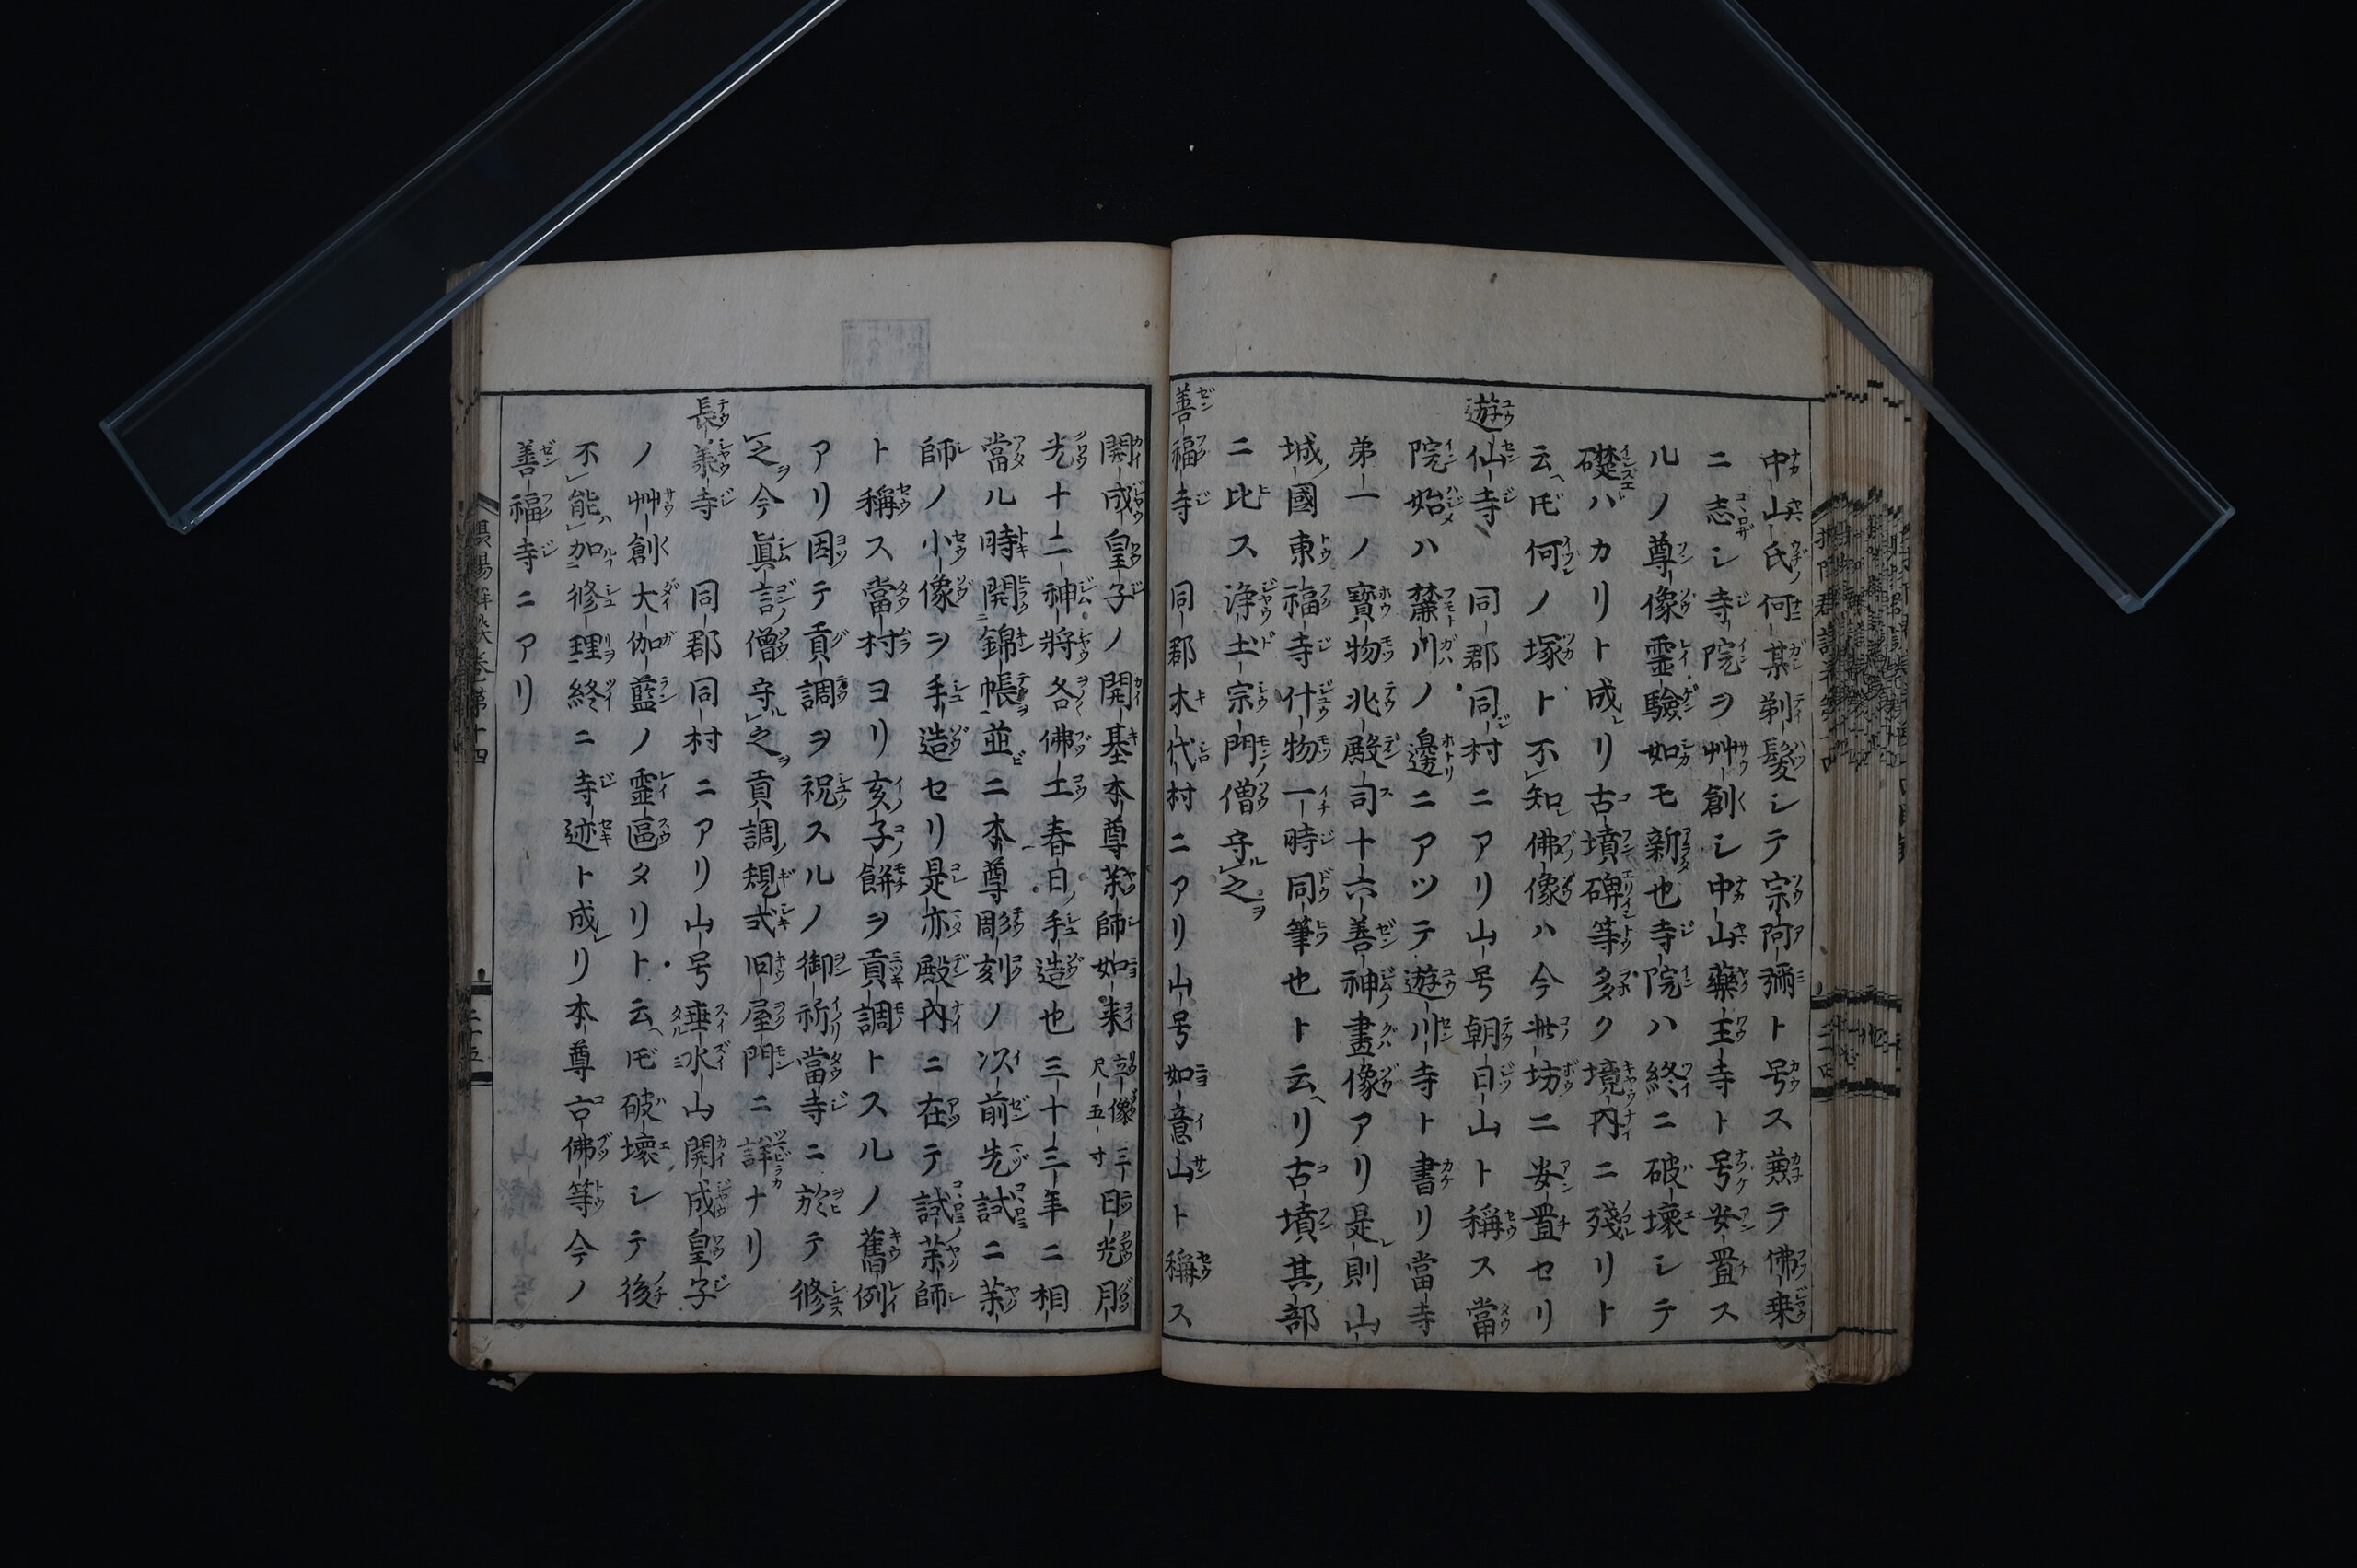 中山氏何某剃髮シテ宗阿彌ト号ス兼テ佛乗
ニ志シ寺院ヲ艸創シ中山藥王寺ト号安置ス
ルノ尊像霊驗如モ新也寺院ハ終ニ破壞シテ
礎ハカリト成リ古墳碑等多ク境内ニ殘リト
云ヘ𪜈何ノ塚ト不知佛像ハ今此坊ニ安置セリ
遊仙寺 同郡同村ニアリ山号朝日山ト稱ス當
院始ハ麓川ノ邊ニアツテ遊川寺ト書リ當寺
第一ノ寳物兆殿司十六善神ノ畫像アリ是則山
城ノ國東福寺什物一時同筆也ト云ヘリ古墳其ノ部
ニ比ス浄土宗門ノ僧守ル之ヲ
善福寺 同郡木代村ニアリ山号如意山ト稱ス
開成皇子ノ開基本尊薬師如来立像三尺五寸日光月
光十二神將各佛土春日ノ手造也三十三年ニ相
當ル時開錦帳並ニ本尊彫刻ノ以前先試ニ薬
師ノ小像ヲ手造セリ是亦殿内ニ在テ試薬師
ト稱ス當村ヨリ亥子餅ヲ貢調トスルノ舊例
アリ因テ貢調ヲ祝スルノ御祈當寺ニ於テ修
之ヲ今眞言ノ僧守ル之ヲ貢調ノ規式旧屋門ニ詳ナリ
長薬寺 同郡同村ニアリ山号垂水山開成皇子
ノ艸創大伽藍ノ霊區タリト云ヘ𪜈破壞シテ後
不能ハ加ルニ修理ヲ終ニ寺迹ト成リ本尊古佛等今ノ
善福寺ニアリ
二十五